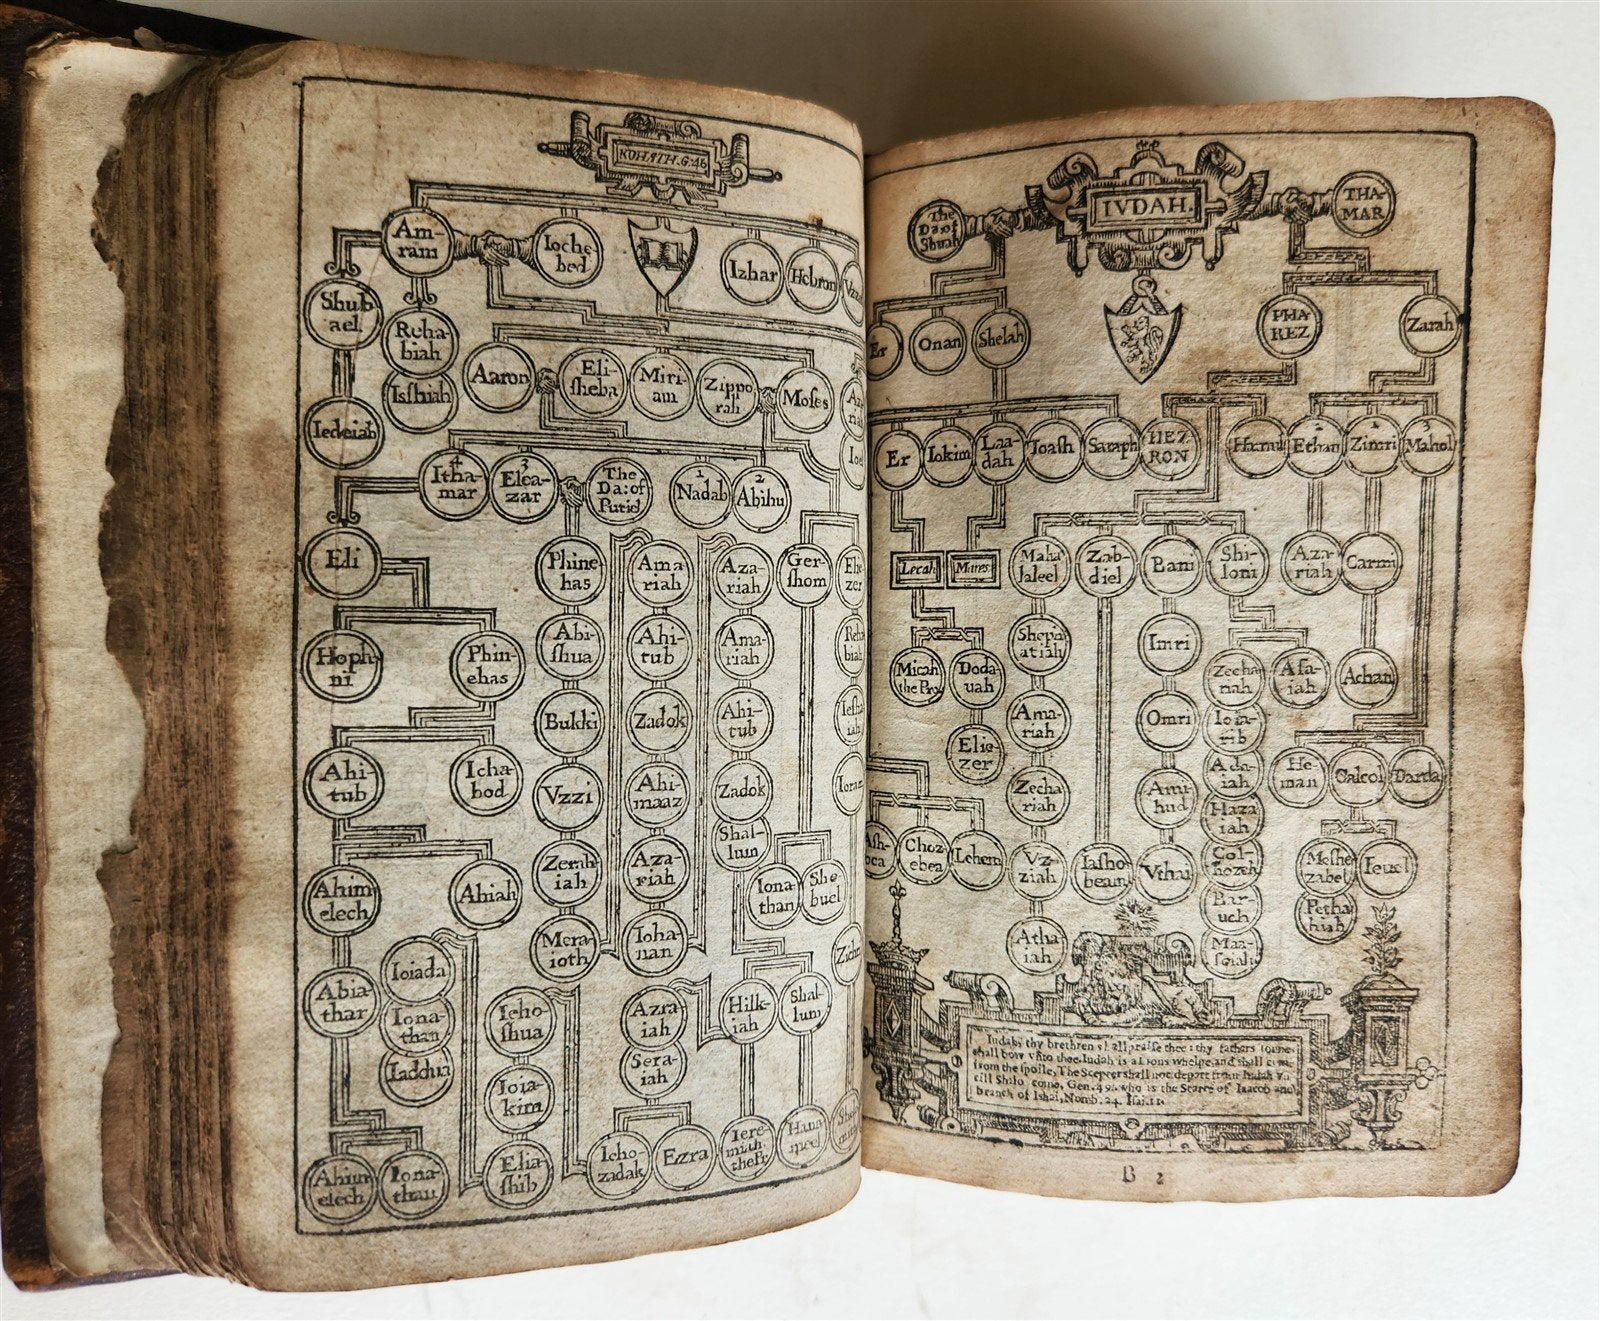 KOHATH. G. 46
Am-
ram
Ioche-
bed
Izhar
Hebron
Shub
ael
Reha-
biah
Isshiah
Iedeiah
Aaron
Eli-
sheba
Miri-
am
Zippo
rah
Moses
4
Itha-
mar
3
Elea-
zar
The
Da: of
Putiel
1
Nadab
2
Abihu
Eli
Phine
has
Ama
riah
Aza-
riah
Ger-
shom
Elie
zer
Hoph
ni
Phin-
ehas
Abi-
shua
Ahi-
tub
Ama-
riah
Reha
biah
Bukki
Zadok
Ahi-
tub
Ahi-
tub
Icha-
bod
Vzzi
Ahi-
maaz
Zadok
Ioram
Shal-
lum
Ahim
elech
Ahiah
Zerah
iah
Aza-
riah
Iona-
than
She
buel
Mera-
ioth
Ioha-
nan
Zichri
Ioiada
Abia-
thar
Iona-
than
Iaddua
Ieho-
shua
Azra-
iah
Hilk-
iah
Shal-
lum
Sera-
iah
Ioia-
kim
Ahim
elech
Iona-
than
Elia-
shib
Ieho-
zadak
Ezra
Iere-
miah
the Pr.
Hana
meel
The
Da: of
Shuah
IVDAH.
THA-
MAR
Er
Onan
Shelah
PHA
REZ
Zarah
Er
Iokim
Laa-
dah
Ioash
Saraph
HEZ
RON
Hamul
2
Ethan
1
Zimri
3
Mahol
Lecah
Mares
Maha
laleel
Zab-
diel
Bani
Shi-
loni
Aza-
riah
Carmi
Micah
the Pro
Doda-
vah
Shepa
atiah
Imri
Zecha
riah
Asa-
iah
Achan
Elie-
zer
Ama-
riah
Omri
Ioia-
rib
Zecha
riah
Ami-
hud
Ada-
iah
He-
man
Calcol
Darda
Haza
iah
Ash-
bea
Choz-
ebea
Lehem
Vz-
ziah
Iasho-
beam
Vthai
Col-
hozeh
Meshe
zabel
Ieuel
Bar-
uch
Petha
hiah
Atha-
iah
Maa-
seiah
Iudah thy brethren shall praise thee: thy fathers sonnes
shall bow vnto thee, Iudah is a Lions whelpe, and shall come
from the spoile, The Scepter shall not depart from Iudah vn
till Shilo come, Gen. 49. who is the Starre of Iaacob and
branch of Ishai, Nomb. 24. Isai. 11.
B 2